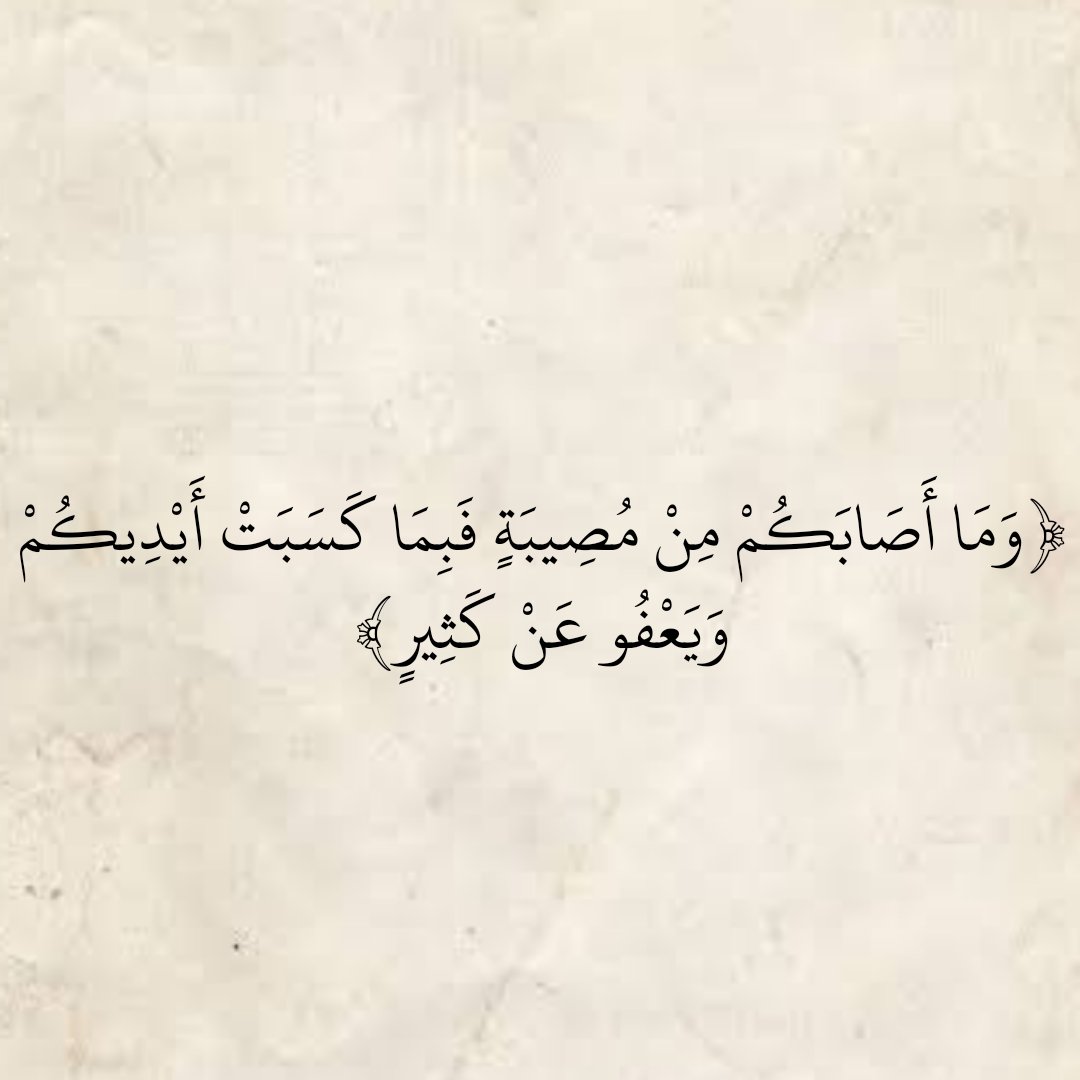 ﴿وَمَا أَصَابَكُمْ مِنْ مُصِيبَةٍ فَبِمَا كَسَبَتْ أَيْدِيكُمْ
وَيَعْفُو عَنْ كَثِيرٍ﴾